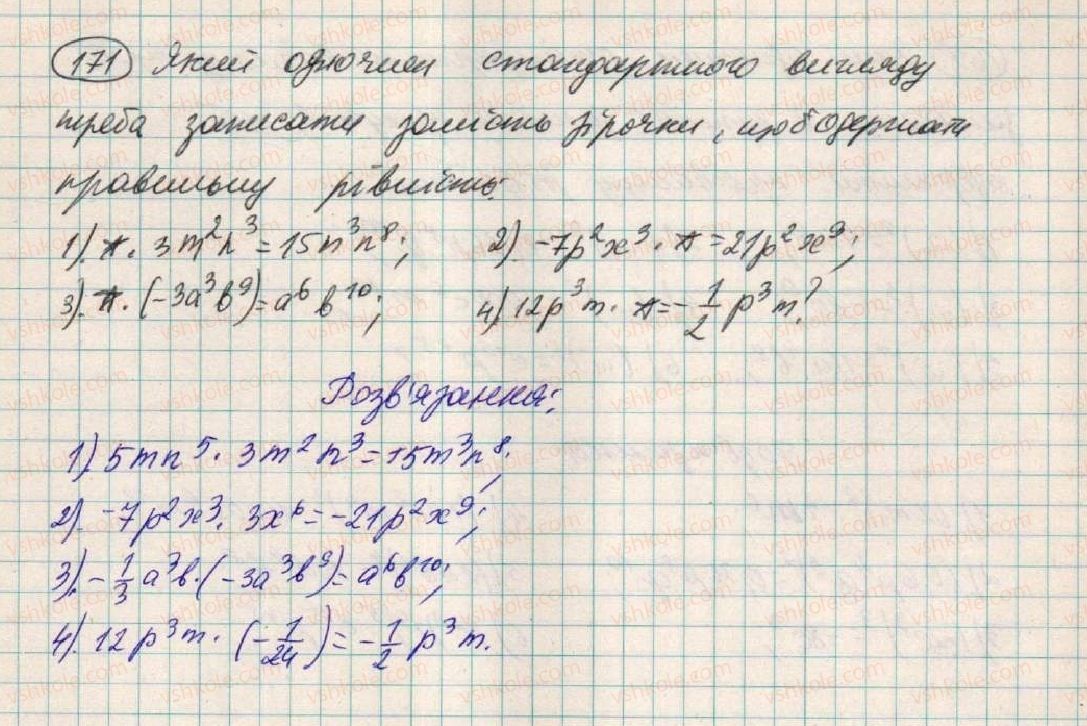 171 Який одночлен стандартного вигляду
треба записати замість зірочки, щоб одержати
правильну рівність:
1). * · 3m²n³ = 15n³n⁸; 2) -7p²x³ · * = 21p²x⁹;
3). * · (-3a³b⁹) = a⁶b¹⁰; 4). 12p³m · * = -1/2 p³m?
Розв'язання:
1) 5mn⁵ · 3m²n³ = 15m³n⁸;
2). -7p²x³ · 3x⁶ = -21p²x⁹;
3). -1/3 a³b · (-3a³b⁹) = a⁶b¹⁰;
4). 12p³m · (-1/24) = -1/2 p³m.